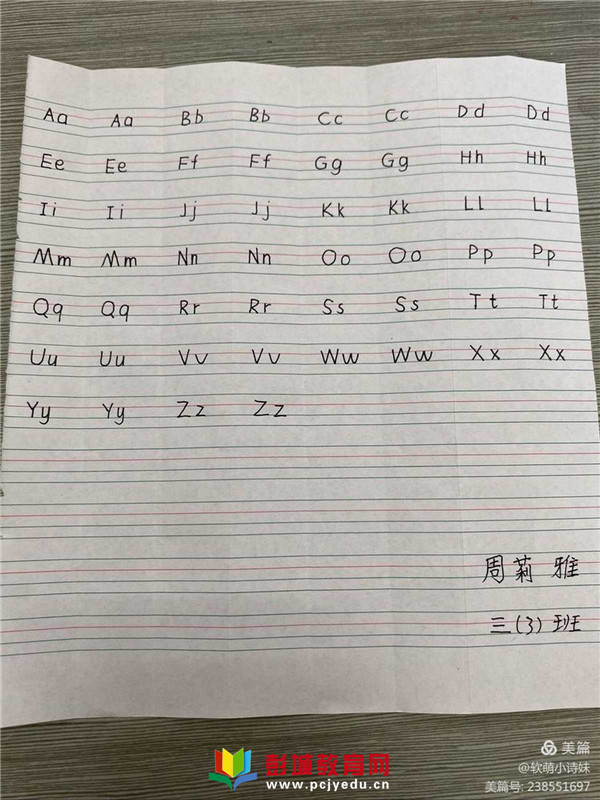 Aa Aa Bb Bb Cc Cc Dd Dd
Ee Ee Ff Ff Gg Gg Hh Hh
Ii Ii Jj Jj Kk Kk Ll Ll
Mm Mm Nn Nn Oo Oo Pp Pp
Qq Qq Rr Rr Ss Ss Tt Tt
Uu Uu Vv Vv Ww Ww Xx Xx
Yy Yy Zz Zz
周莉雅
三(3)班
彭城教育网
www.pcjyedu.cn
美篇
@软萌小诗妹
美篇号: 238551697